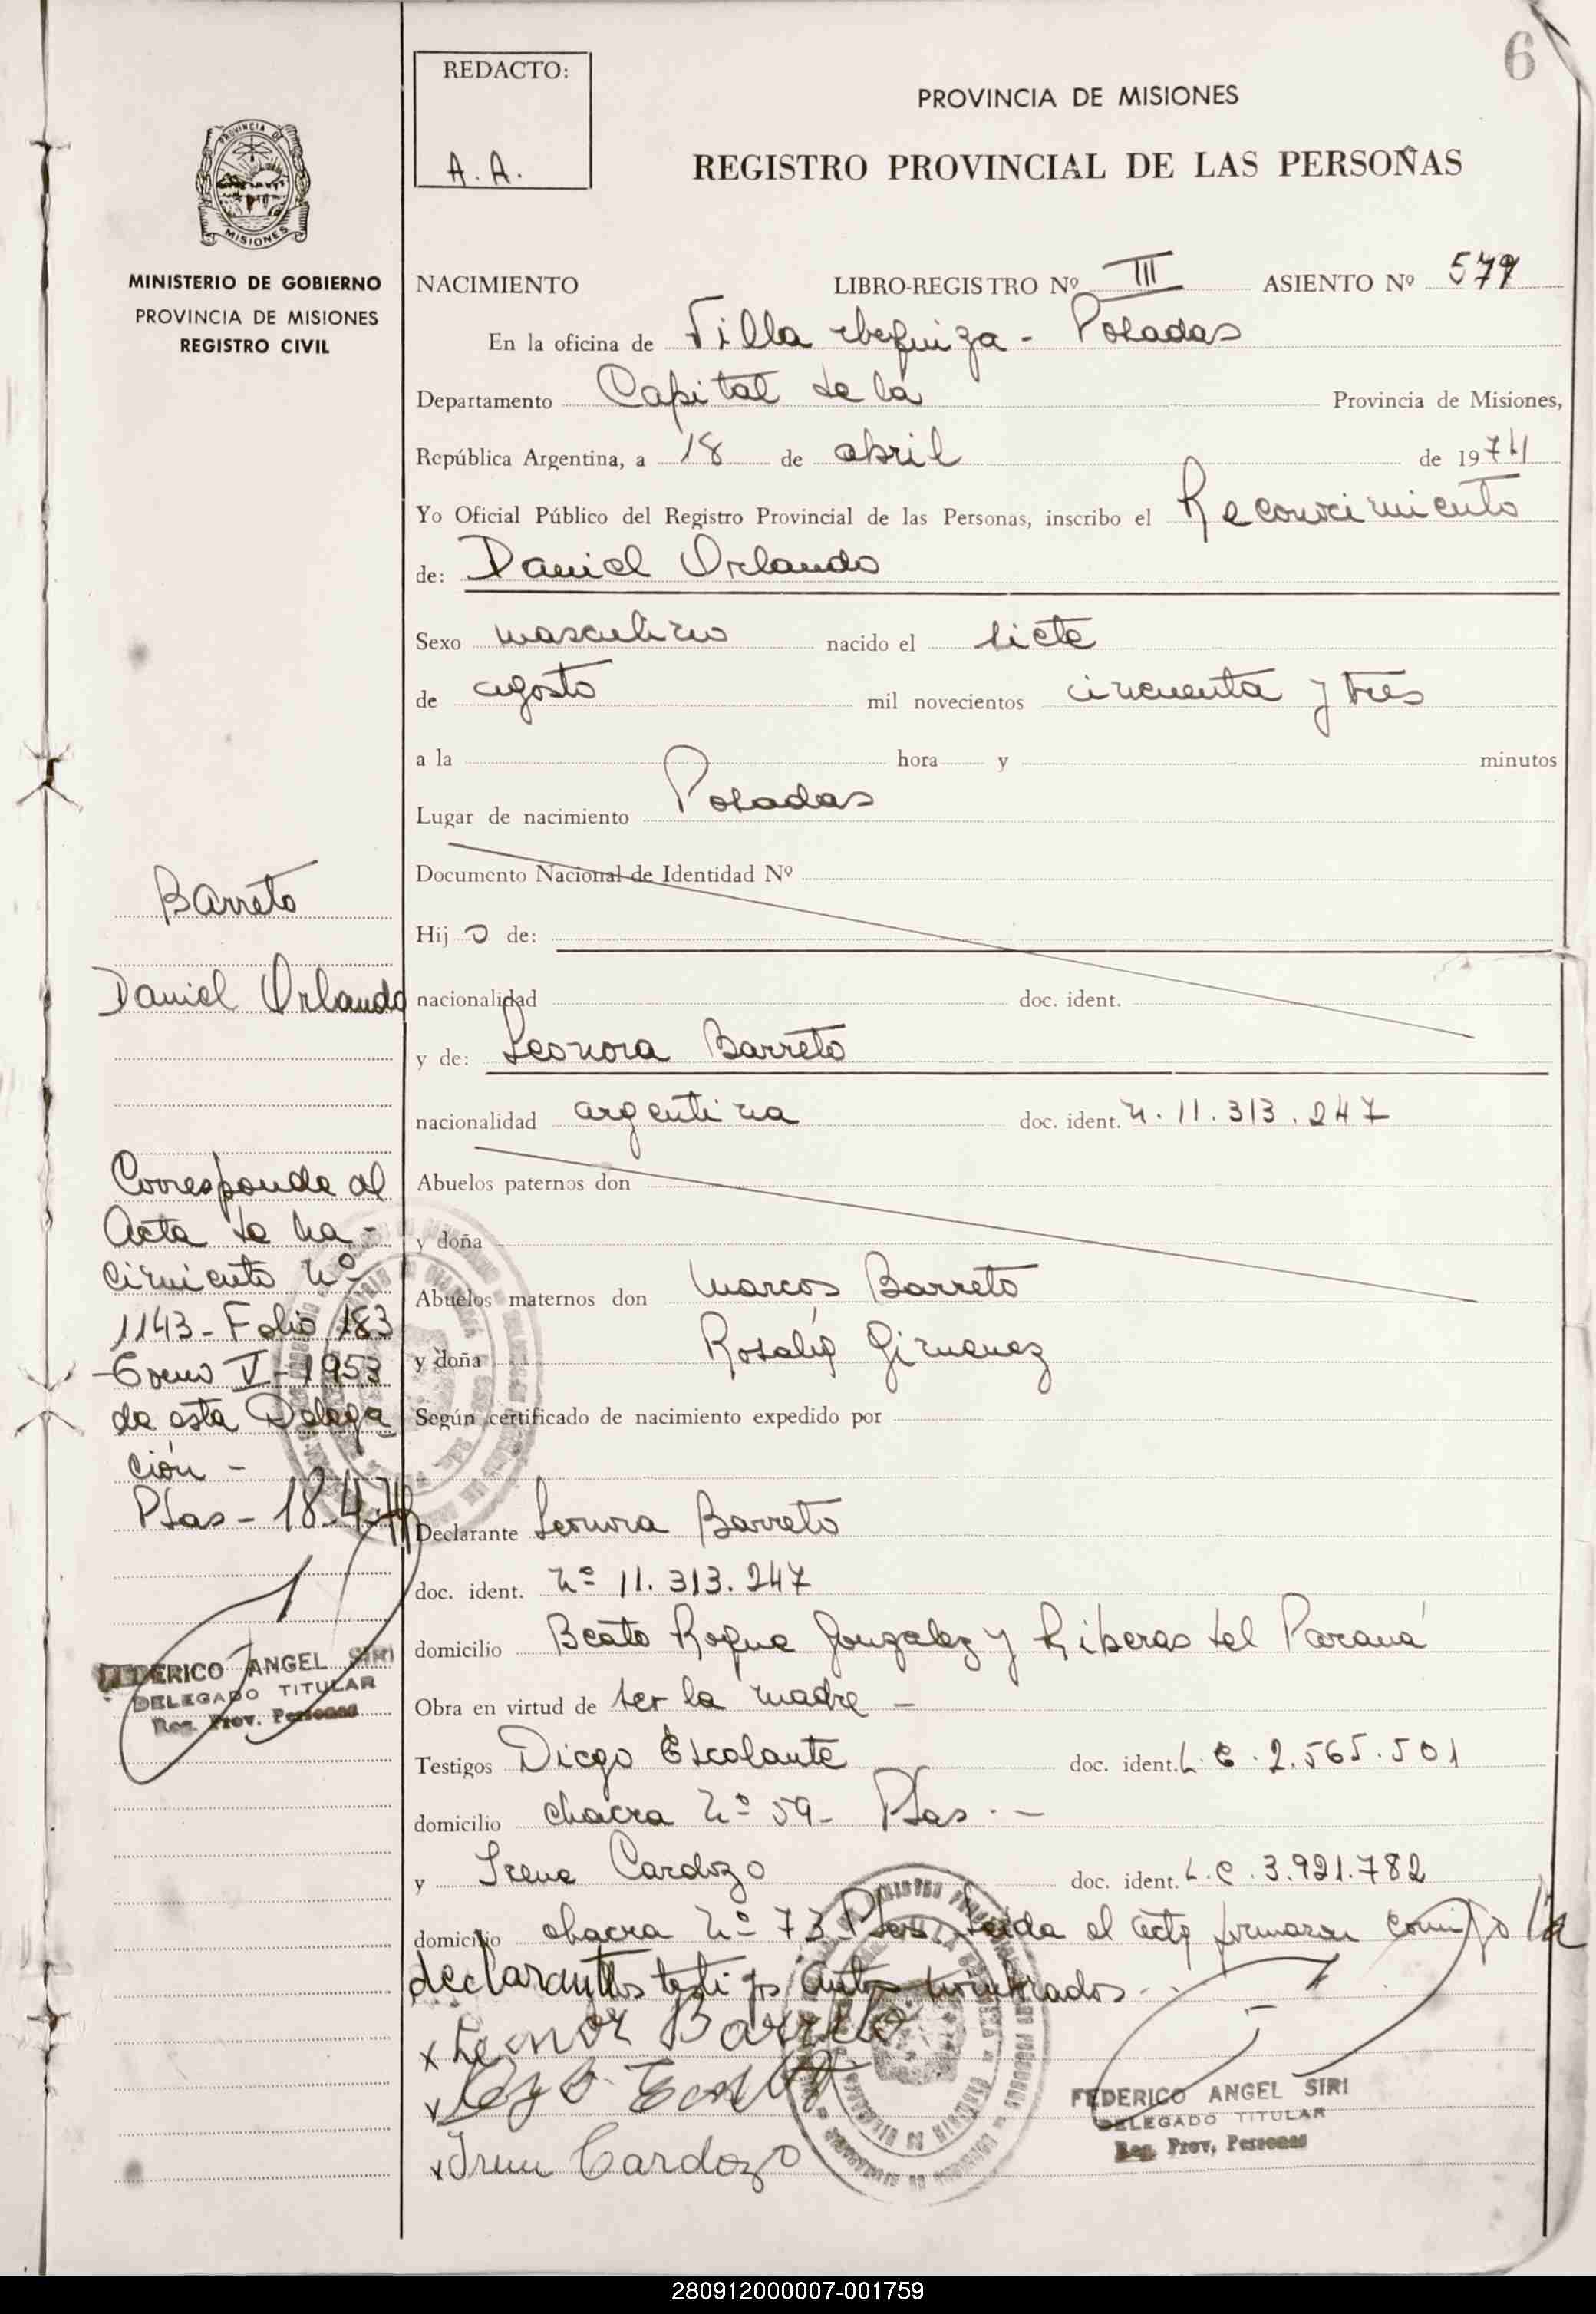 6
REDACTO:
A. A.
PROVINCIA DE MISIONES
REGISTRO PROVINCIAL DE LAS PERSONAS
PROVINCIA DE
MISIONES
MINISTERIO DE GOBIERNO
PROVINCIA DE MISIONES
REGISTRO CIVIL
NACIMIENTO LIBRO-REGISTRO Nº III ASIENTO Nº 577
En la oficina de Villa - Posadas
Departamento Capital de la Provincia de Misiones,
República Argentina, a 18 de abril de 1974
Yo Oficial Público del Registro Provincial de las Personas, inscribo el Reconocimiento
de: Daniel Orlando
Sexo masculino nacido el siete
de agosto mil novecientos cincuenta y tres
a la hora y minutos
Lugar de nacimiento Posadas
Documento Nacional de Identidad Nº
Hij o de:
nacionalidad doc. ident.
y de: Leonora Barreto
nacionalidad argentina doc. ident. n. 11.313.247
Abuelos paternos don
y doña
Abuelos maternos don Marcos Barreto
y doña Rosalía Gimenez
Según certificado de nacimiento expedido por
Declarante Leonora Barreto
doc. ident. nº 11.313.247
domicilio Beato Roque Gonzalez y Riberas del Paraná
Obra en virtud de ser la madre -
Testigos Diego Escalante doc. ident. L. E. 2.565.501
domicilio chacra nº 59- Pdas. -
y Irene Cardozo doc. ident. L. C. 3.921.782
domicilio chacra nº 73 Pdas. Leida el acta firmaron conmigo la
declarante testigos antes nombrados.
x Leonor Barreto
x
x Irene Cardozo
FEDERICO ANGEL SIRI
DELEGADO TITULAR
Reg. Prov. Personas
Barreto
Daniel Orlando
Corresponde al
Acta de na-
cimiento nº
1143 - Folio 183
Tomo V - 1953
de esta Delega
ción -
Pdas - 18.4.74
FEDERICO ANGEL SIRI
DELEGADO TITULAR
Reg. Prov. Personas
280912000007-001759